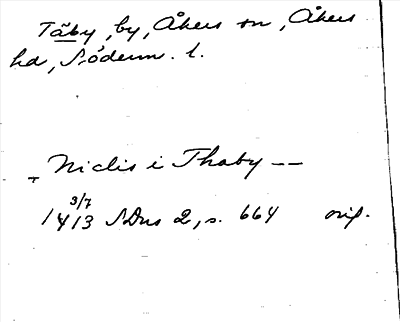 Täby, by, Åkers sn, Åkers
hd, Söderm. l.
Niclis i Thaby --
3/7
1413 SDns 2, s. 664 orig.